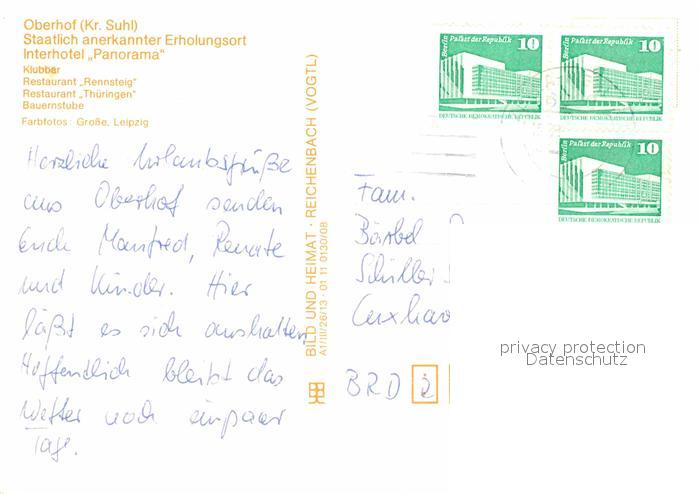 Oberhof (Kr. Suhl)
Staatlich anerkannter Erholungsort
Interhotel „Panorama“
Klubbar
Restaurant „Rennsteig“
Restaurant „Thüringen“
Bauernstube
Farbfotos: Große, Leipzig
Herzliche Urlaubsgrüße
aus Oberhof senden
Euch Manfred, Renate
und Kinder. Hier
läßt es sich aushalten,
Hoffentlich bleibt das
Wetter noch ein paar
Tage.
BILD UND HEIMAT · REICHENBACH (VOGTL)
A1/III/26/13 · 01 11 0130/08
Berlin Palast der Republik 10
DEUTSCHE DEMOKRATISCHE REPUBLIK
Berlin Palast der Republik 10
DEUTSCHE DEMOKRATISCHE REPUBLIK
Berlin Palast der Republik 10
DEUTSCHE DEMOKRATISCHE REPUBLIK
Fam.
Bärbel
Cuxhav
BRD
privacy protection
Datenschutz